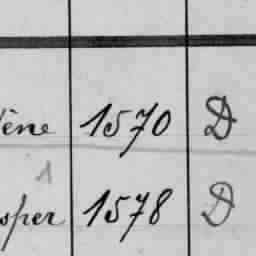 ène 1570 D
1
sper 1578 D